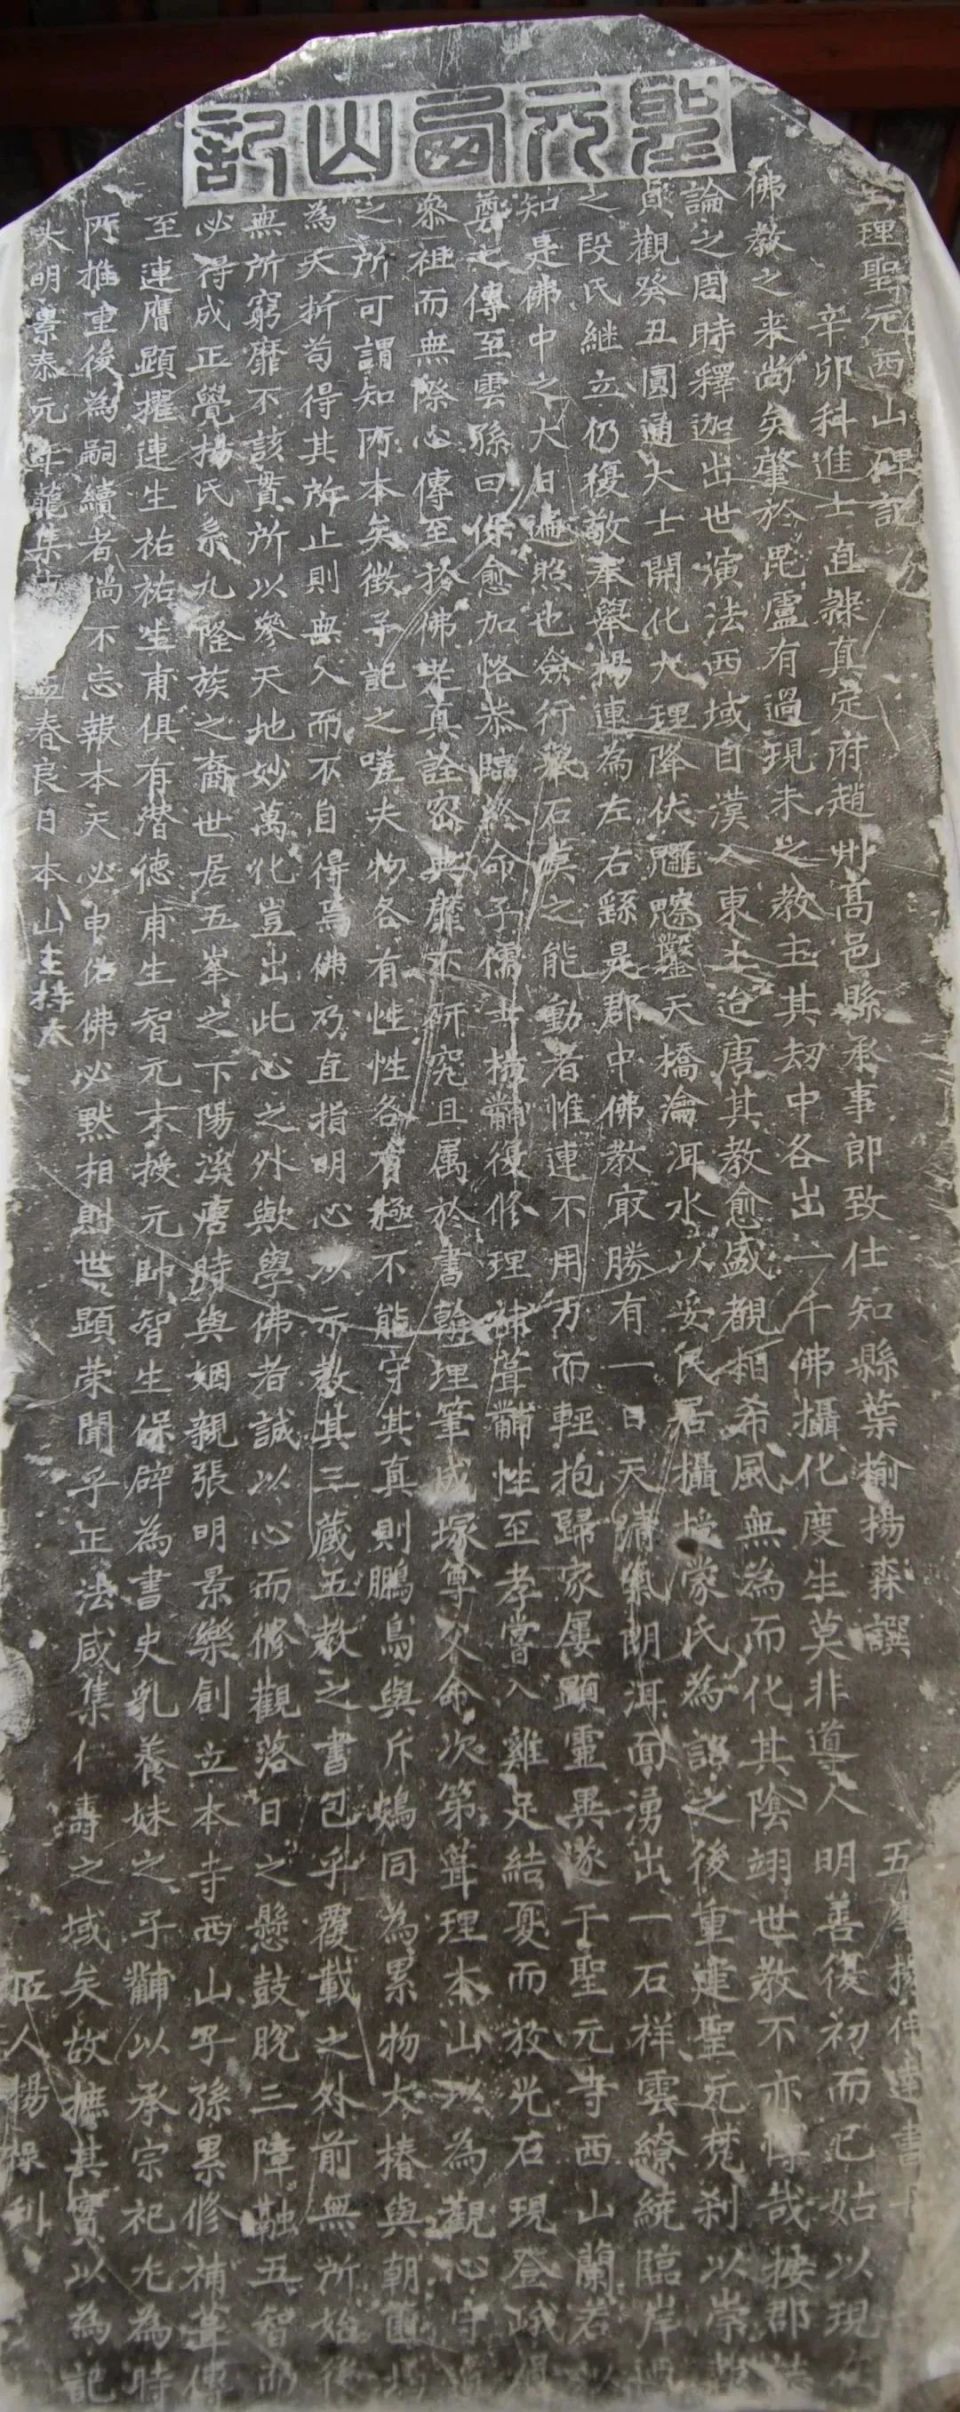 聖元西山記
理聖元西山碑記
辛卯科進士直隸真定府趙州高邑縣承事郎致仕知縣葉榆楊森撰 五峯楊仲連書
佛教之来尚矣肇於毘盧有過現未之教主其刼中各出一千佛攝化度生莫非導人明善復初而已姑以現
論之周時釋迦出世演法西域自漢入東土迨唐其教愈盛觀相希風無為而化其陰翊世教不亦哉按郡
貞觀癸丑圓通大士開化大理降伏邏鑿天橋瀹洱水以妥民居攝授蒙氏為詔之後重建聖元梵刹以崇
之段氏継立仍復敬奉舉楊連為左右繇是郡中佛教冣勝有一日天清氣朗洱面湧出一石祥雲繚繞臨岸
知是佛中之大日遍照也僉行舉石之能動者惟連不用力而輕抱歸家屢顯靈異遂于聖元寺西山蘭若
之傳至雲孫曰保愈加恪恭臨終命子儒士楊黼復修理黼性至孝嘗入雞足結夏而放光石現登
祖而無際心傳至於佛老真詮密典靡不研究且属於書翰埋筆成塚尊父命次第葺理本山以為觀心守
之所可謂知所本矣徴予記之嗟夫物各有性性各有極不能守其真則鵬鳥與斥鴳同為累物大椿與朝菌
為夭折苟得其所止則無入而不自得焉佛乃直指明心以示教其三藏五教之書包乎覆載之外前無所始後
無所窮靡不該貫所以參天地妙萬化豈出此心之外歟學佛者誠以心而修觀落日之懸鼓脫三障融五智而
必得成正覺楊氏系九隆族之裔世居五峯之下陽溪唐時與姻親張明景樂創立本寺西山子孫累修補葺傳
至連膺顯擢連生祐祐生甫俱有潜德甫生智元末授元帥智生保辟為書史乳養妹之子黼以承宗祀尤為時
所推重後為嗣續者不忘報本天必申佑佛必默相則世顯荣聞乎正法咸集仁壽之域矣故摭其實以為記
大明景泰元年龍集孟春良日本山主持 匠人楊